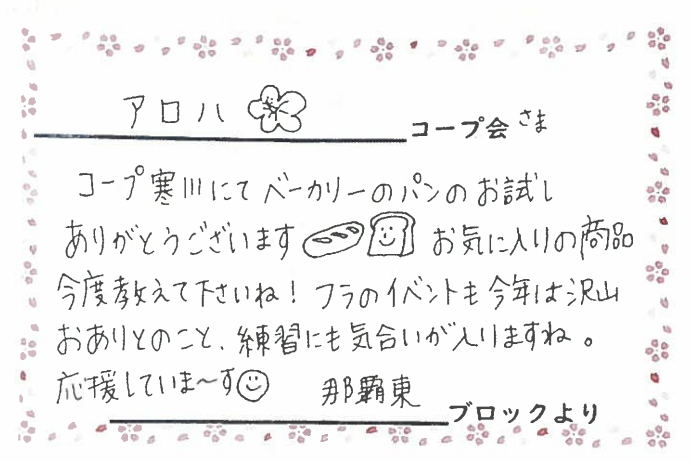 アロハ コープ会さま
コープ寒川にてベーカリーのパンのお試し
ありがとうございます お気に入りの商品
今度教えて下さいね！フラのイベントも今年は沢山
おありとのこと、練習にも気合いが入りますね。
応援していま〜す 那覇東 ブロックより